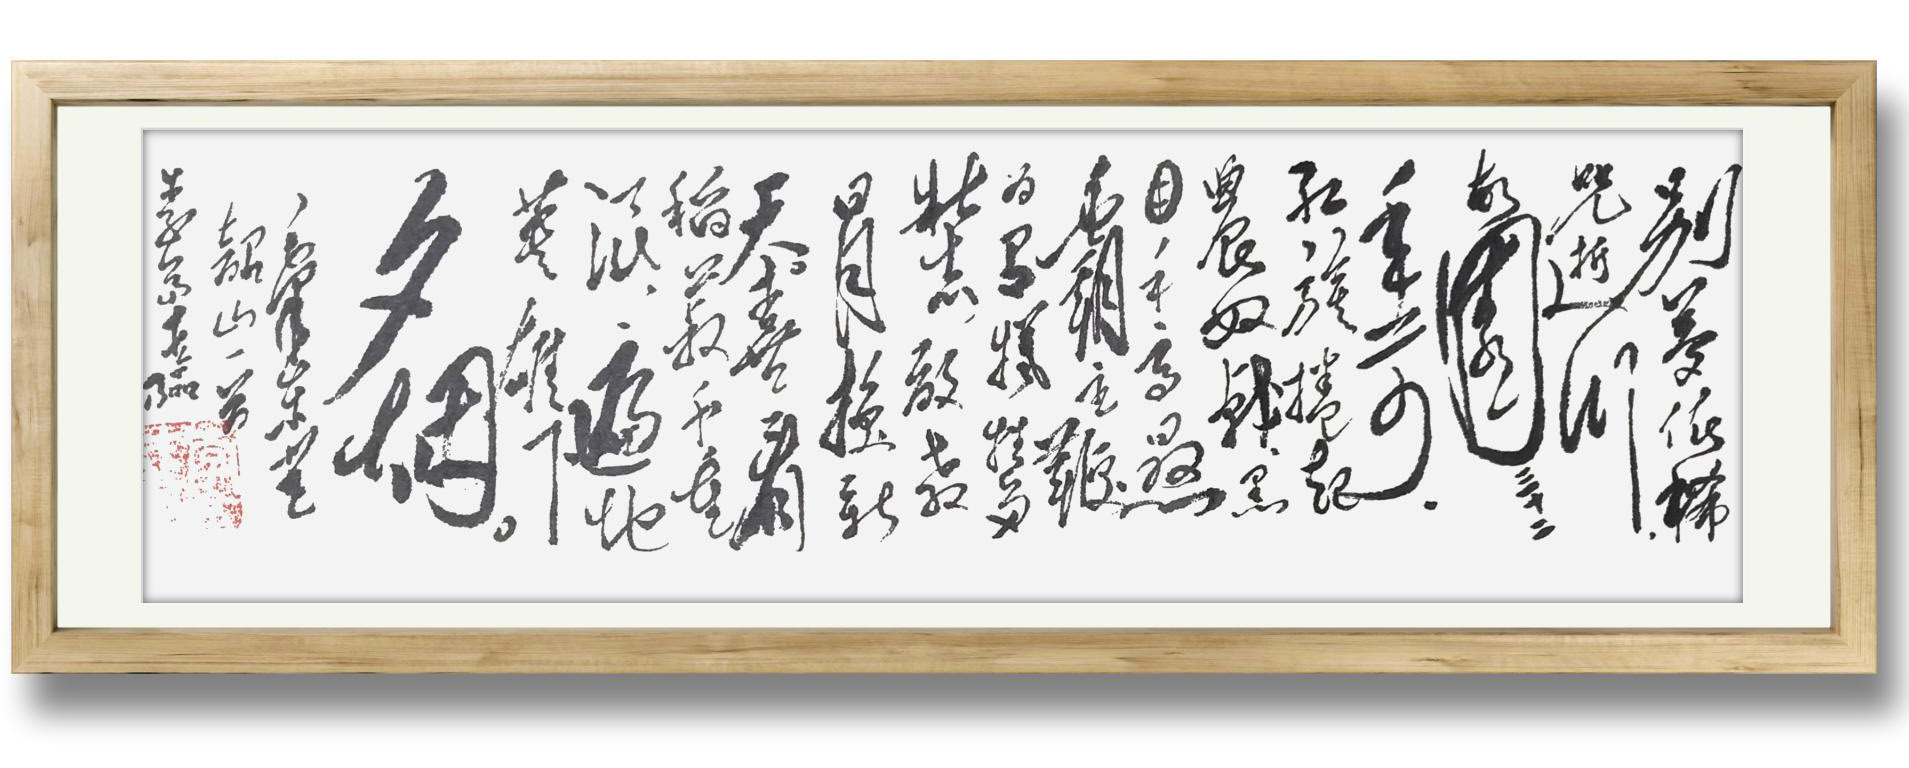 别梦依稀
咒逝
川
故園三十二
年前
红旗捲起
農奴戟黑
手高悬
霸主鞭
为有犧牲多
壮志敢教
日月换新
天喜看
稻菽千重
浪遍地
英雄下
夕烟
毛澤東
韶山一首